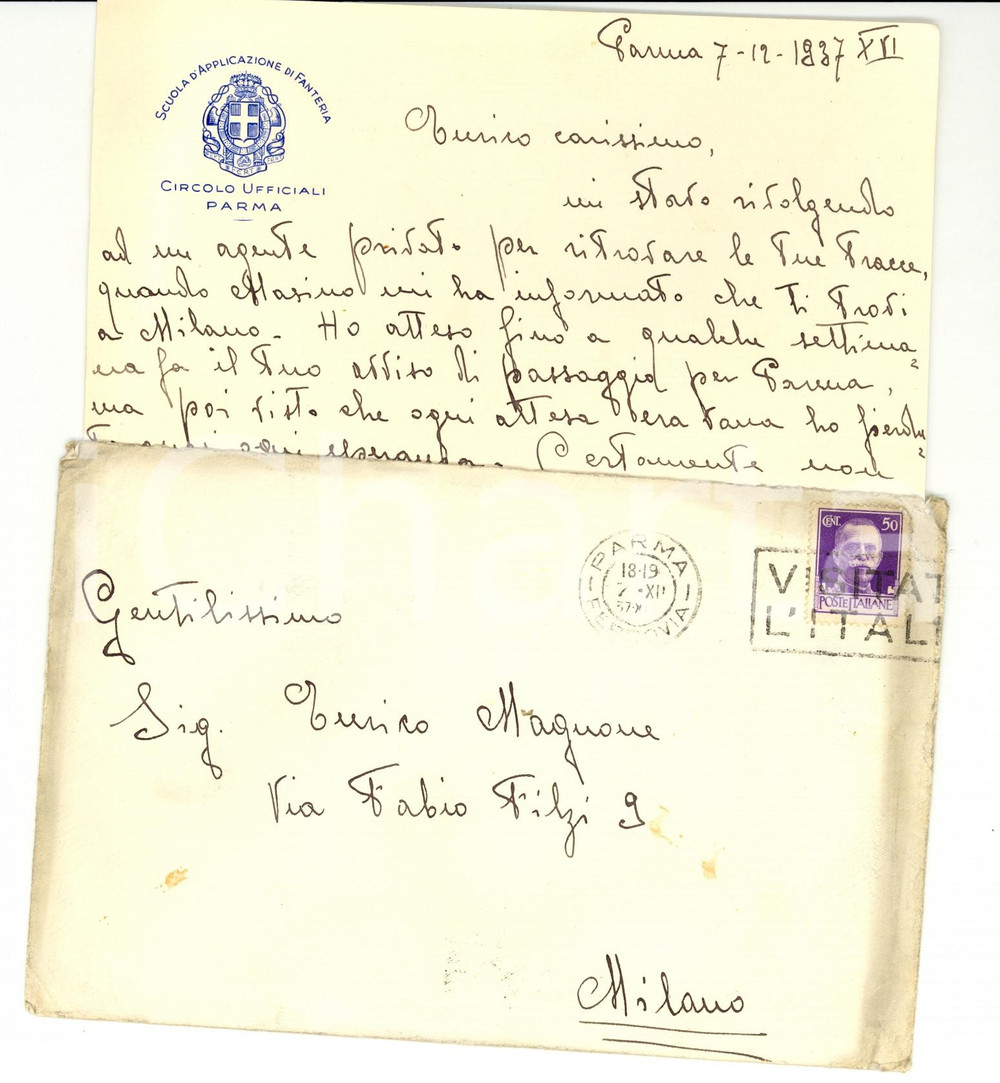 Parma 7-12-1937 XVI
SCUOLA D'APPLICAZIONE DI FANTERIA
CIRCOLO UFFICIALI
PARMA
Enrico carissimo,
mi stavo rivolgendo
ad un agente privato per ritrovare le tue tracce,
quando Masino mi ha informato che ti trovi
a Milano. Ho atteso fino a qualche settima=
na fa il tuo avviso di passaggio per Parma,
ma poi visto che ogni attesa era vana ho perdu=
to ogni speranza. Certamente non
PARMA
18-19
7 XII
37-X
FERROVIA
VISITAT
L'ITALI
CENT. 50
POSTE ITALIANE
Gentilissimo
Sig. Enrico Magnone
Via Fabio Filzi 9
Milano